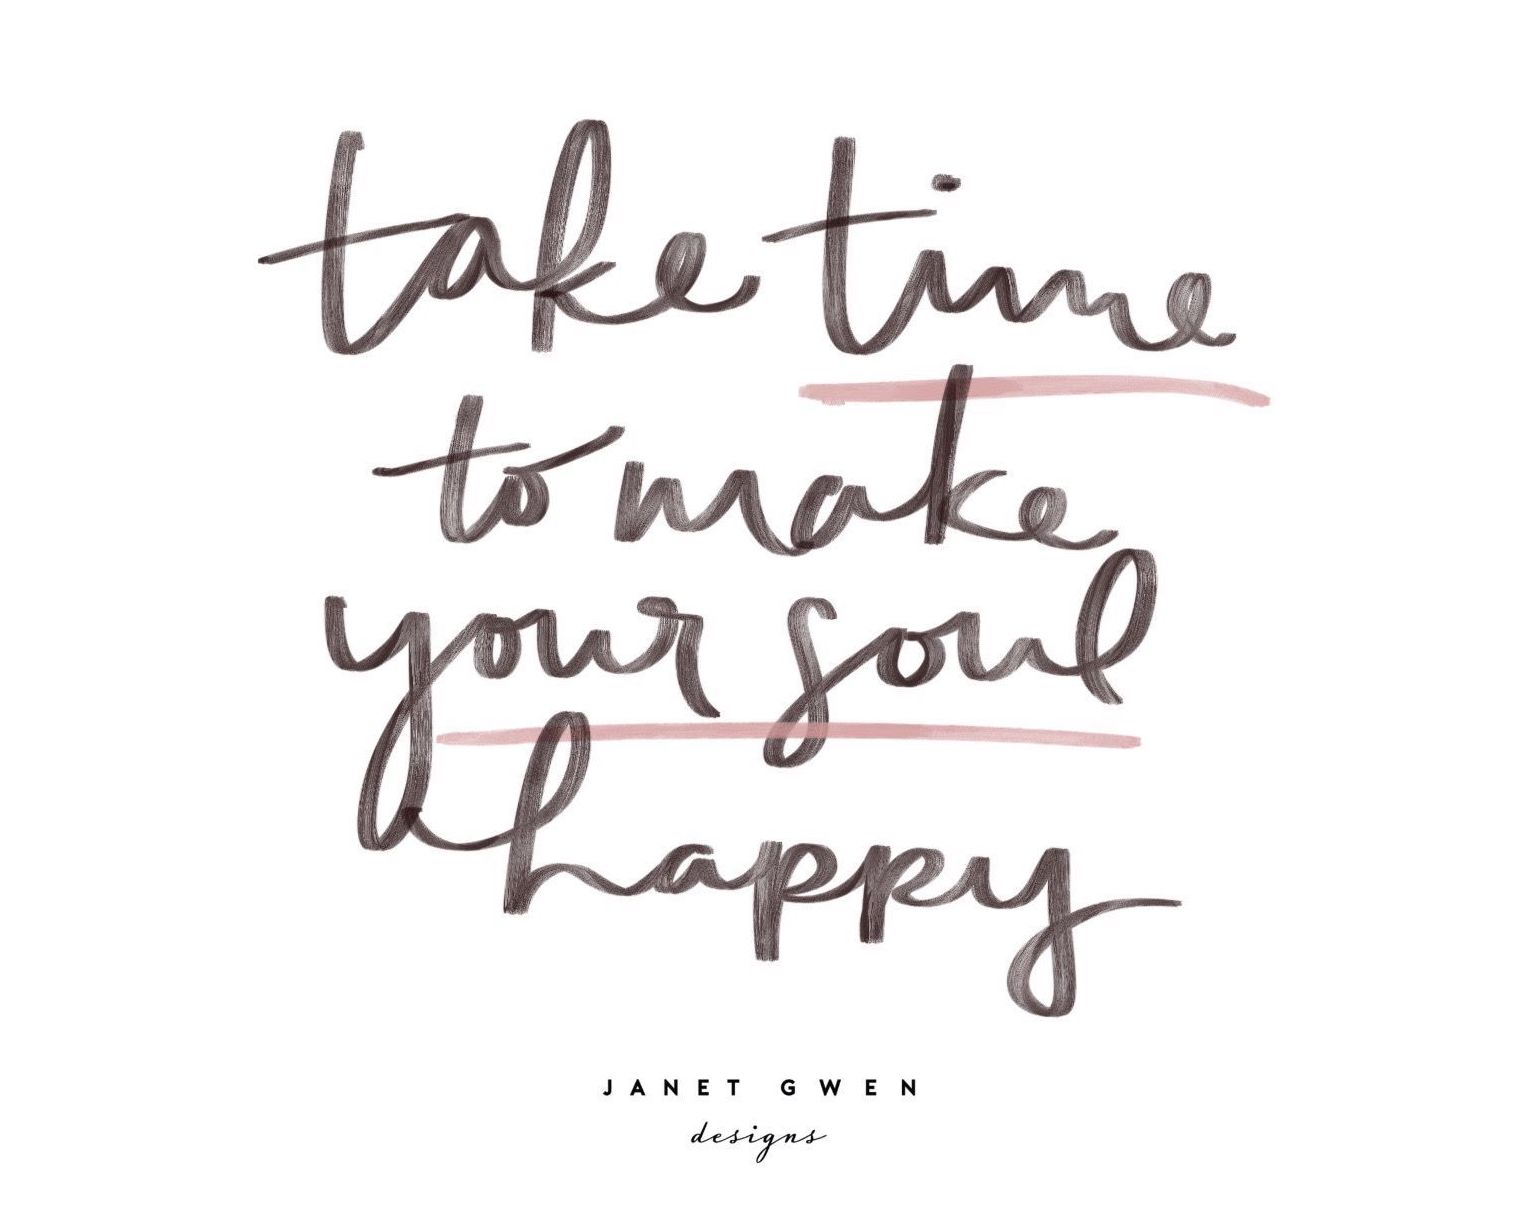 take time
to make
your soul
happy
JANET GWEN
designs